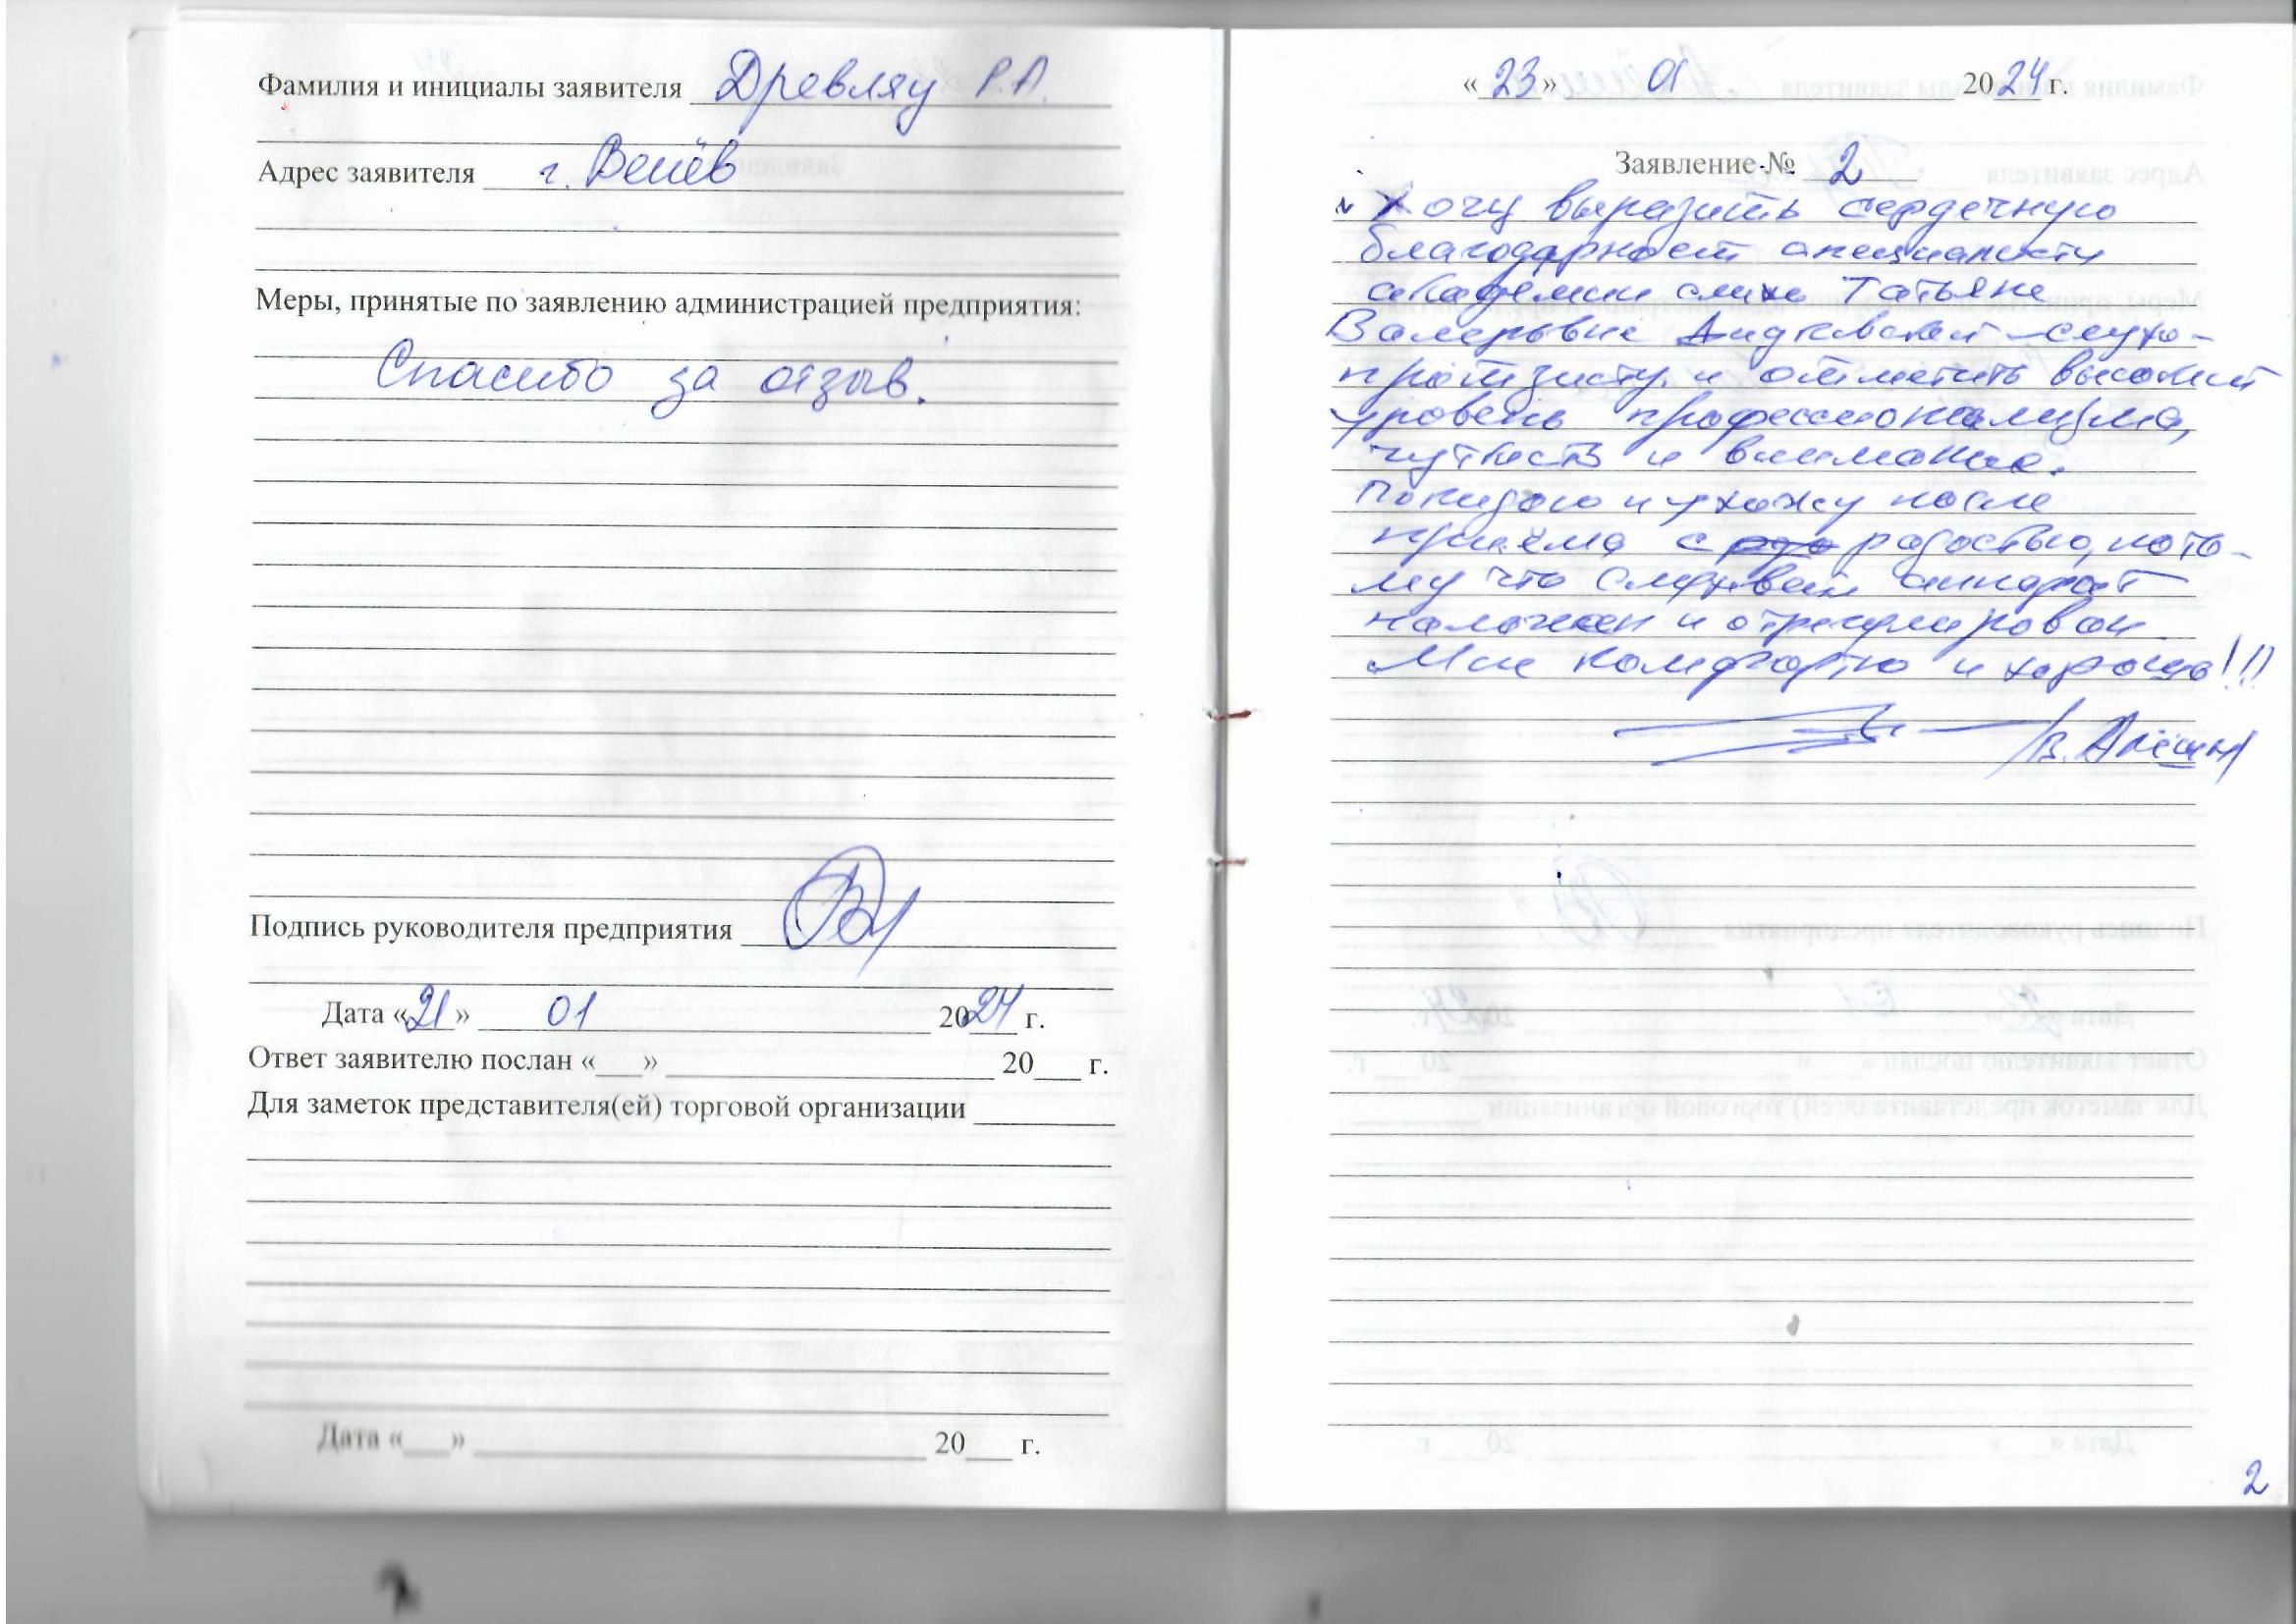 Фамилия и инициалы заявителя Древляу Р.А.
Адрес заявителя г. Венёв
Меры, принятые по заявлению администрацией предприятия:
Спасибо за отзыв.
Подпись руководителя предприятия
Дата «21» 01 2024 г.
Ответ заявителю послан «___» 20___ г.
Для заметок представителя(ей) торговой организации
Дата «___» 20___ г.
«23» 01 2024 г.
Заявление № 2
Хочу выразить сердечную
благодарность специалисту
академии слуха Татьяне
Валерьевне - слухо-
протезисту и отметить высокий
уровень профессионализма,
чуткость и внимание.
Покидаю и ухожу после
приёма с радостью, пото-
му что слуховой аппарат
налажен и отрегулирован.
Мне комфортно и хорошо!!!
/В. Алёшин/
2